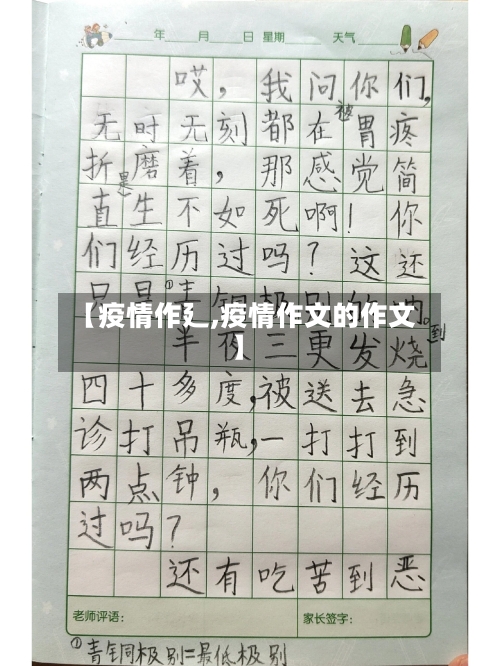 年 月 日 星期 天气
哎，我问你们，
无时无刻都在被胃疼
折磨着，那感觉简
直是生不如死啊！你
们经历过吗？这还
只是①青铜级别的
【疫情作,疫情作文的作文
】
半夜三更发烧到
四十多度，被送去急
诊打吊瓶，一打打到
两点钟，你们经历
过吗？
还有吃苦到恶
老师评语： 家长签字：
①青铜极别=最低极别